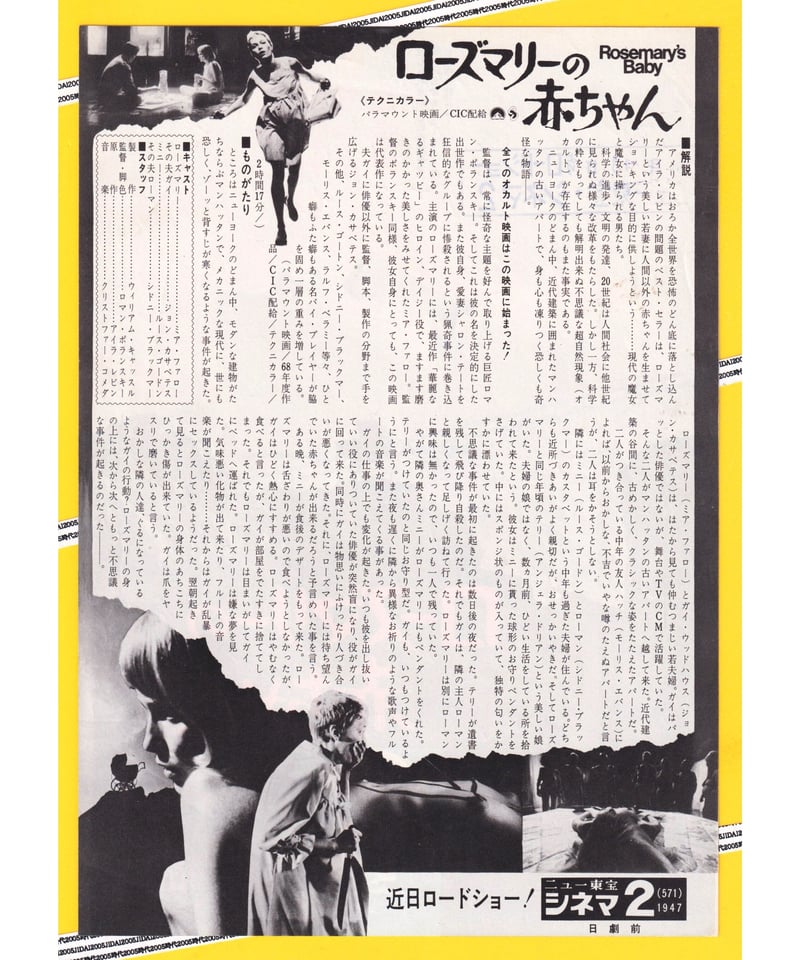 ローズマリーの
赤ちゃん
Rosemary's
Baby
〈テクニカラー〉
パラマウント映画/CIC配給
■解説
アメリカはおろか全世界を恐怖のどん底に落とし込ん
だアイラ・レビンの問題のベスト・セラー「ローズマ
リーという美しい若妻に人間以外の赤ちゃんを生ませて
ショッキングな目的に供しようという……現代の魔女
と魔女に操られる男たち。
科学の進歩、文明の発達、20世紀は人間社会に他世紀
に見られぬ様々な改革をもたらした。しかし一方、科学
の粋をもってしても解明出来ぬ不思議な超自然現象〈オ
カルト〉が存在するのもまた事実である。
ニューヨークのどまん中、近代建築に囲まれたマンハ
ッタンの古いアパートで、身も心も凍りつく恐しくも奇
怪な物語。
全てのオカルト映画はこの映画に始まった!
監督は、常に怪奇な主題を好んで取り上げる巨匠ロマ
ン・ポランスキー。そしてこれは彼の名を決定的にした
出世作でもある。また彼自身、愛妻シャロン・テートを
狂信的なグループに惨殺されるという猟奇事件に巻き込
まれている。主演のローズマリーには、最近作「華麗な
るギャツビー」のヒロイン、デイジー役で、ますます磨
きのかかった美しさをみせてくれたミア・ファロー。監
督のポランスキー同様、彼女自身にとっても、この映画
は代表作になっている。
夫ガイに俳優以外に監督、脚本、製作の分野まで手を
広げるジョン・カサベテス。
その他、ルース・ゴートン、シドニー・ブラックマー、
モーリス・エバンス、ラルフ・ベラミー等々、ひと
癖もふた癖もある名バイ・プレイヤーが脇
を固め一層の重みを増している。
(パラマウント映画/68年度作
品/CIC配給/テクニカラー/
2時間17分)
■ものがたり
ところはニューヨークのどまん中、モダンな建物がた
ちならぶマンハッタンで、メカニックな現代に、世にも
恐しく、ゾーッと背すじが寒くなるような事件が起きた。
■キャスト
ローズマリー……ミア・ファロー
その夫ガイ……ジョン・カサベテス
ミニー……ルース・ゴードン
その夫ローマン……シドニー・ブラックマー
■スタッフ
製作……ウィリアム・キャッスル
監督・脚色……ロマン・ポランスキー
原作……アイラ・レビン
音楽……クリストファー・コメダ
ローズマリー(ミア・ファロー)とガイ・ウッドハウス(ジョ
ン・カサベテス)は、はたから見ても仲むつまじい若夫婦。ガイはパ
ッとした俳優ではないが、舞台やTVのCMで活躍していた。
そんな二人がマンハッタンの古いアパートへ越して来た。近代建
築の谷間に、古めかしく、クラシックな姿をたたえたアパートだ。
二人がつき合っている中年の友人ハッチ(モーリス・エバンス)に
よれば「以前からおかしな、不吉でいやな噂のたえぬアパートだと言
うが、二人は耳をかそうとしない。
隣にはミニー(ルース・ゴードン)とローマン(シドニー・ブラッ
クマー)のカスタベットという中年も過ぎた夫婦が住んでいる。どち
らも近所づきあいがよく親切だが、おせっかいやきだ。そしてローズ
マリーと同じ年頃のテリー(アンジェラ・ドリアン)という美しい娘
がいた。夫婦の娘ではなく、数カ月前、ひどい生活をしている所を拾
われて来たという。彼女はミニーに貰った球形のお守りペンダントを
さげていた。中にはスポンジ状のものが入っていて、独特の匂いをか
すかに漂わせていた。
不思議な事件が最初に起きたのは数日後の夜だった。テリーが遺書
を残して飛び降り自殺したのだ。それでもガイは、隣の主人ローマン
と親しくなって足しげく訪ねて行った。ローズマリーは別にローマン
に興味は無かったので、いつも一人で残っていた。
やがて隣の奥さんのミニーがローズマリーにもペンダントをくれた。
テリーがつけていたのと同じお守り型だ。ガイも、いつもつけているよ
うにと言う。また夜も遅くに隣から異様なお祈りのような歌声やフル
ートの音楽が聞こえてくる事があった。
ガイの仕事の上でも変化が起きた。いつも彼を出し抜い
ていい役にありついていた俳優が突然盲になり、役がガイ
に回って来た。同時にガイは物思いにふけったり人づき合
いが悪くなってきた。それに、ローズマリーには待ち望ん
でいた赤ちゃんが出来るだろうと予言めいた事を言う。
ある晩、ミニーが食後のデザートをもって来た。ロー
ズマリーは舌ざわりが悪いので食べようとしなかったが、
ガイはひどく熱心にすすめる。ローズマリーはやむなく
食べると言ったが、ガイが部屋をでたすきに捨ててし
まった。それでもローズマリーは目まいがしてガイ
にベッドへ運ばれた。ローズマリーは嫌な夢を見
た。気味悪い化物が出て来たり、フルートの音
楽が聞こえたり……それからはガイが乱暴
にセックスしているようだった。翌朝起き
て見るとローズマリーの身体のあちこちに
ひっかき傷が出来ていた。ガイが爪をヤ
スリで磨いていると言う。
おかしな隣の人々達、ぐるになっている
ようなガイの行動?ローズマリーの身
の上には、次から次へともっと不思議
な事件が起きるのだった――。
近日ロードショー!
ニュー東宝
シネマ2
(571)
1947
日劇前